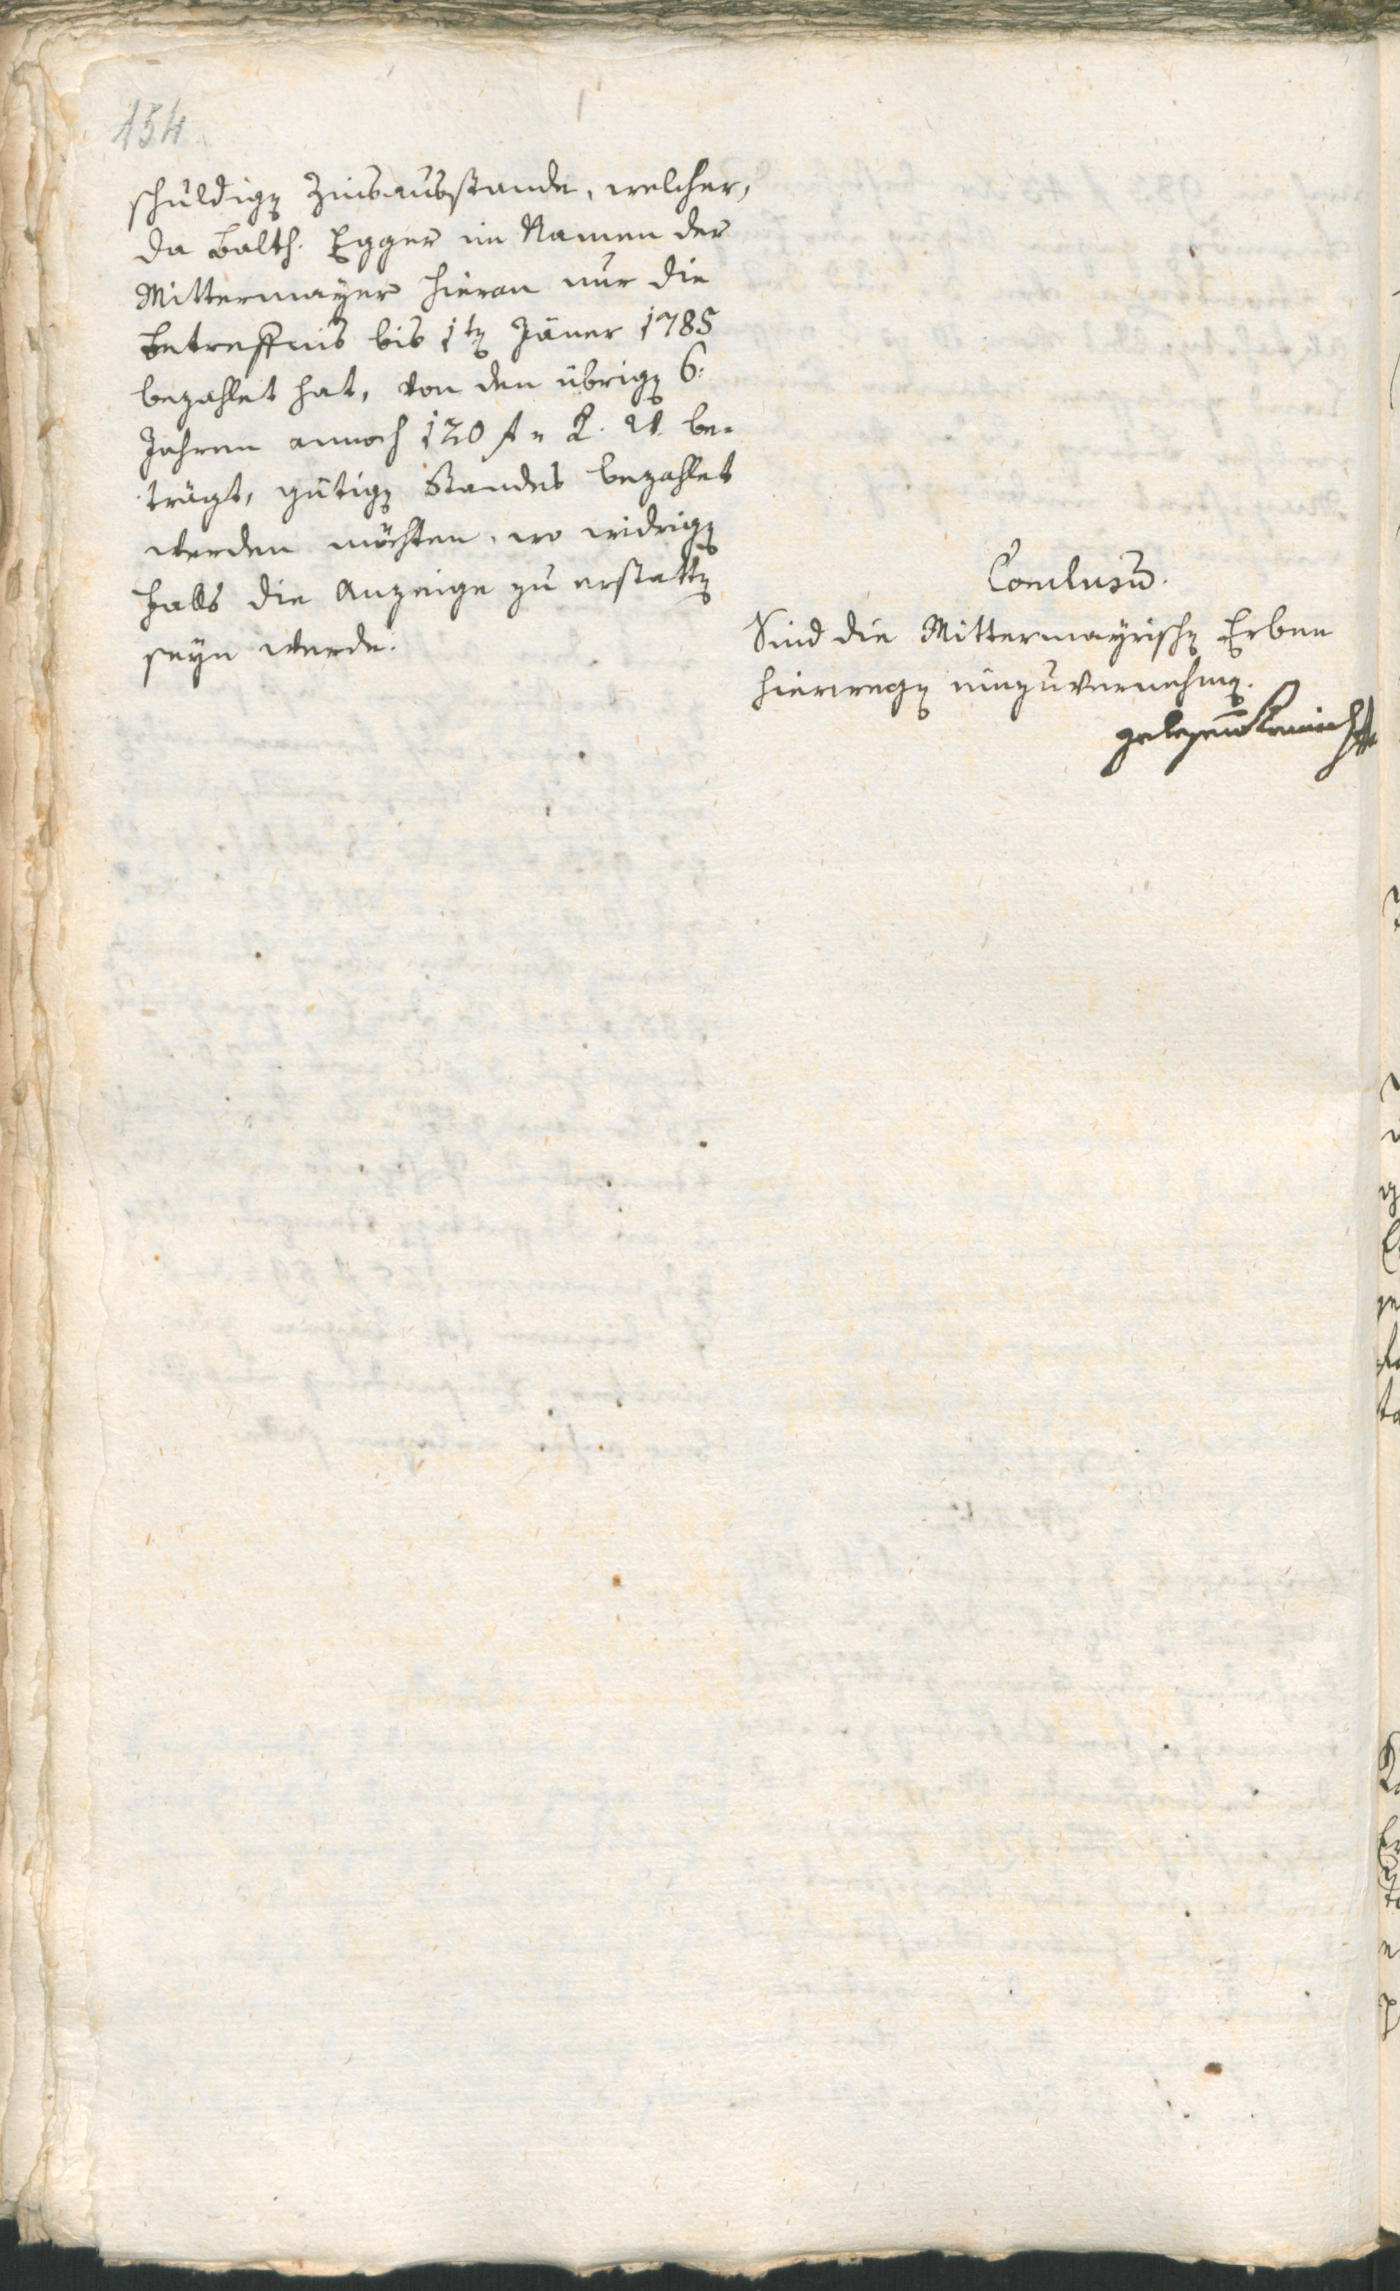 154
schuldigen Zinsausstande, welcher,
da Balth. Egger im Namen der
Mittermayer hieran nur die
Betreffnis bis 1ten Jäner 1785
bezahlet hat, von den übrigen 6:
Jahren annoch 120 f „ R. W. be„
trägt, gütigen Standes bezahlet
werden möchten, wo widrigen
Falls die Anzeige zu erstatten
seyn werde.
Conclusum.
Sind die Mittermayrischen Erben
hierwegen einzuvernehmen.